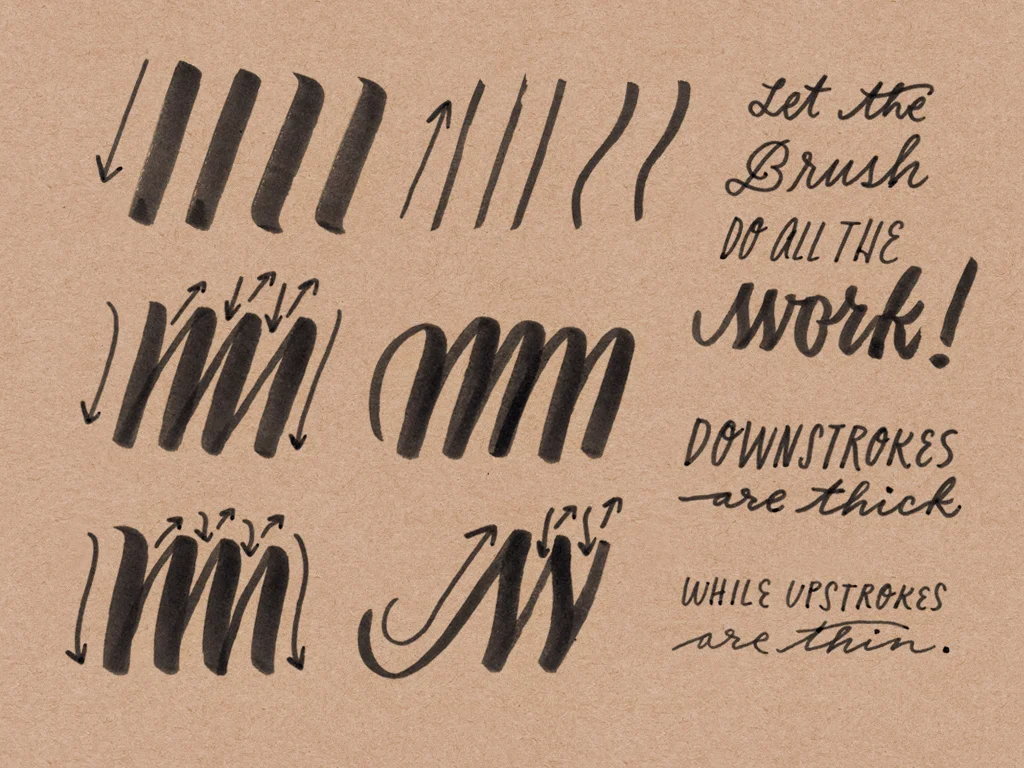 Let the
Brush
DO ALL THE
work!
DOWNSTROKES
are thick
WHILE UPSTROKES
are thin.